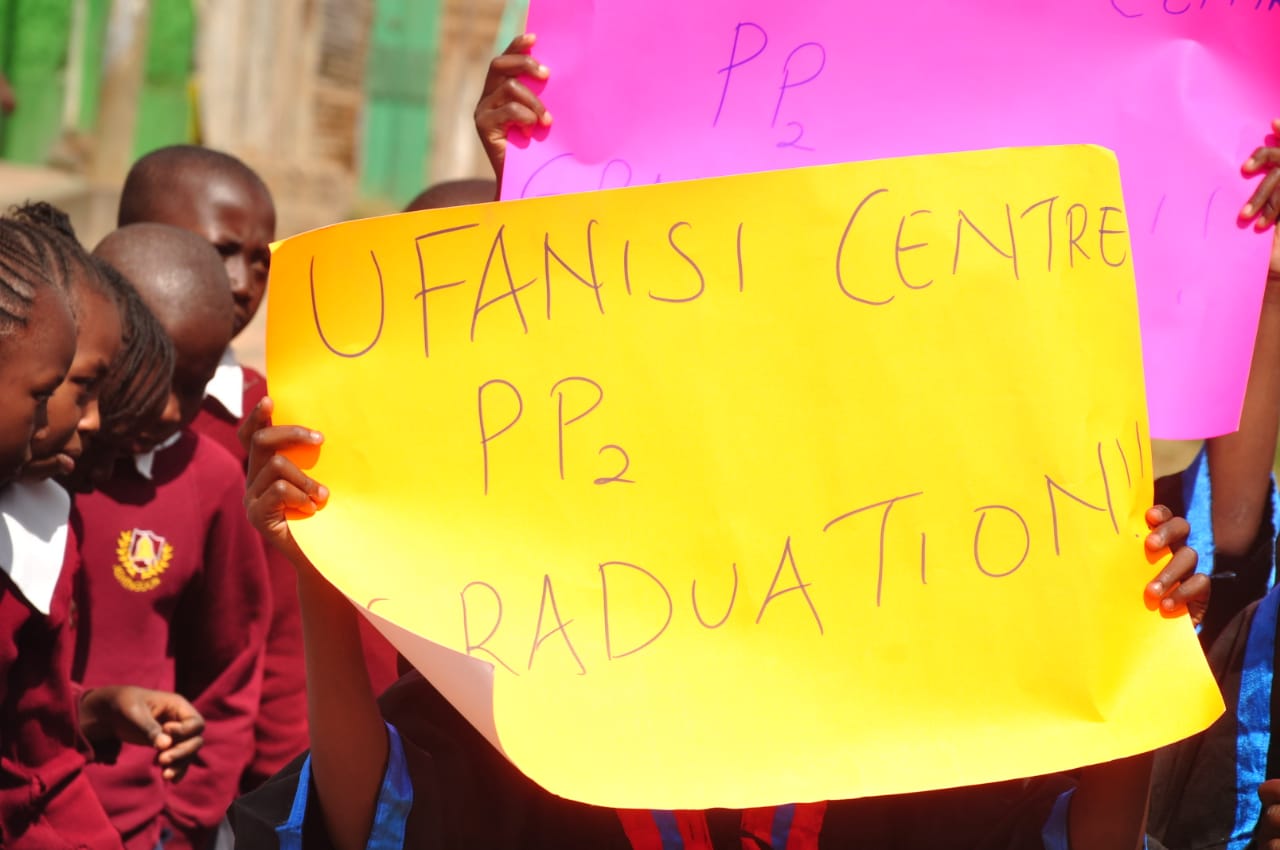 PP2
UFANISI CENTRE
PP2
RADUATION!!!